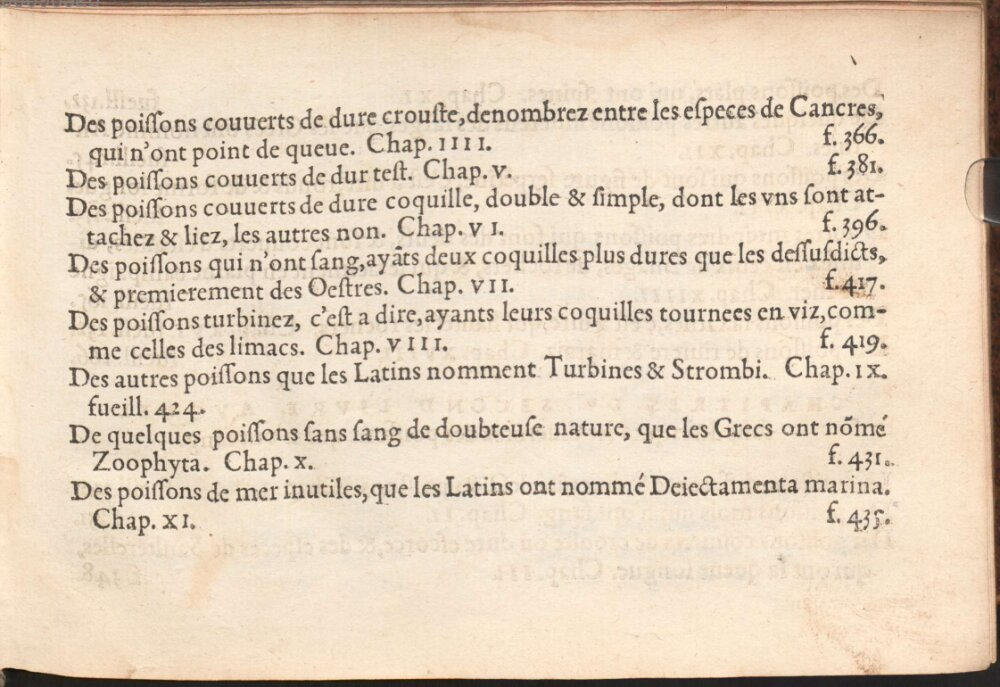 Des poiſſons couuerts de dure crouſte, denombrez entre les eſpeces de Cancres,
qui n'ont point de queue. Chap. IIII. f. 366.
Des poiſſons couuerts de dur teſt. Chap. V. f. 381.
Des poiſſons couuerts de dure coquille, double & ſimple, dont les vns ſont at-
tachez & liez, les autres non. Chap. VI. f. 396.
Des poiſſons qui n'ont ſang, ayãts deux coquilles plus dures que les deſſuſdicts,
& premierement des Oeſtres. Chap. VII. f. 417.
Des poiſſons turbinez, c'eſt a dire, ayants leurs coquilles tournees en viz, com-
me celles des limacs. Chap. VIII. f. 419.
Des autres poiſſons que les Latins nomment Turbines & Strombi. Chap. IX.
fueill. 424.
De quelques poiſſons ſans ſang de doubteuſe nature, que les Grecs ont nõmé
Zoophyta. Chap. X. f. 431.
Des poiſſons de mer inutiles, que les Latins ont nommé Deiectamenta marina.
Chap. XI. f. 435.